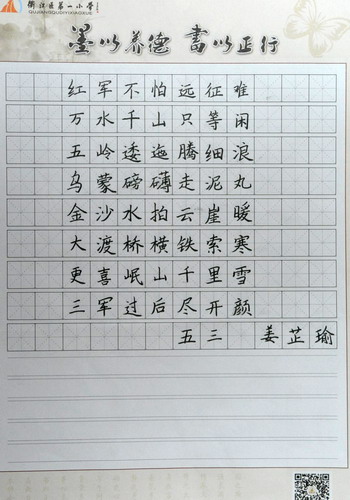 衢江区第一小学
QUJIANGQUDIYIXIAOXUE
墨以养德 书以正行
红军不怕远征难
万水千山只等闲
五岭逶迤腾细浪
乌蒙磅礴走泥丸
金沙水拍云崖暖
大渡桥横铁索寒
更喜岷山千里雪
三军过后尽开颜
五三 姜芷瑜